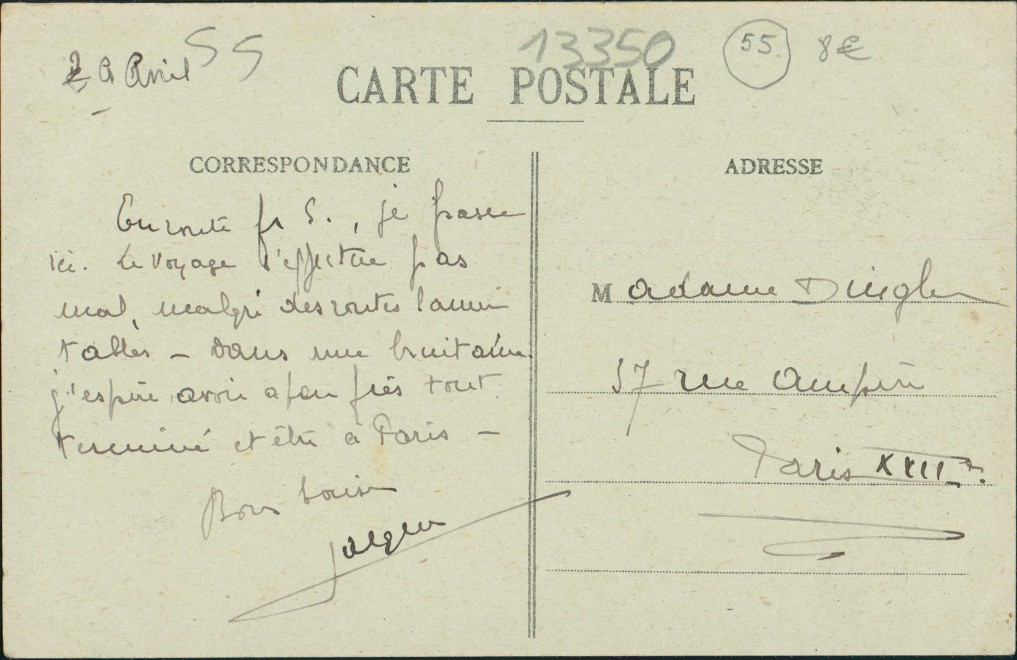 Avril 55
13350
55
8€
CARTE POSTALE
CORRESPONDANCE
En route pr S., je passe
ici. Le voyage s'effectue pas
mal, malgré des routes lamen
tables – Dans une huitaine
j'espère avoir à peu près tout
terminé et être à Paris –
Bons
ADRESSE
Madame Dingler
37 rue Ampère
Paris XVII e.